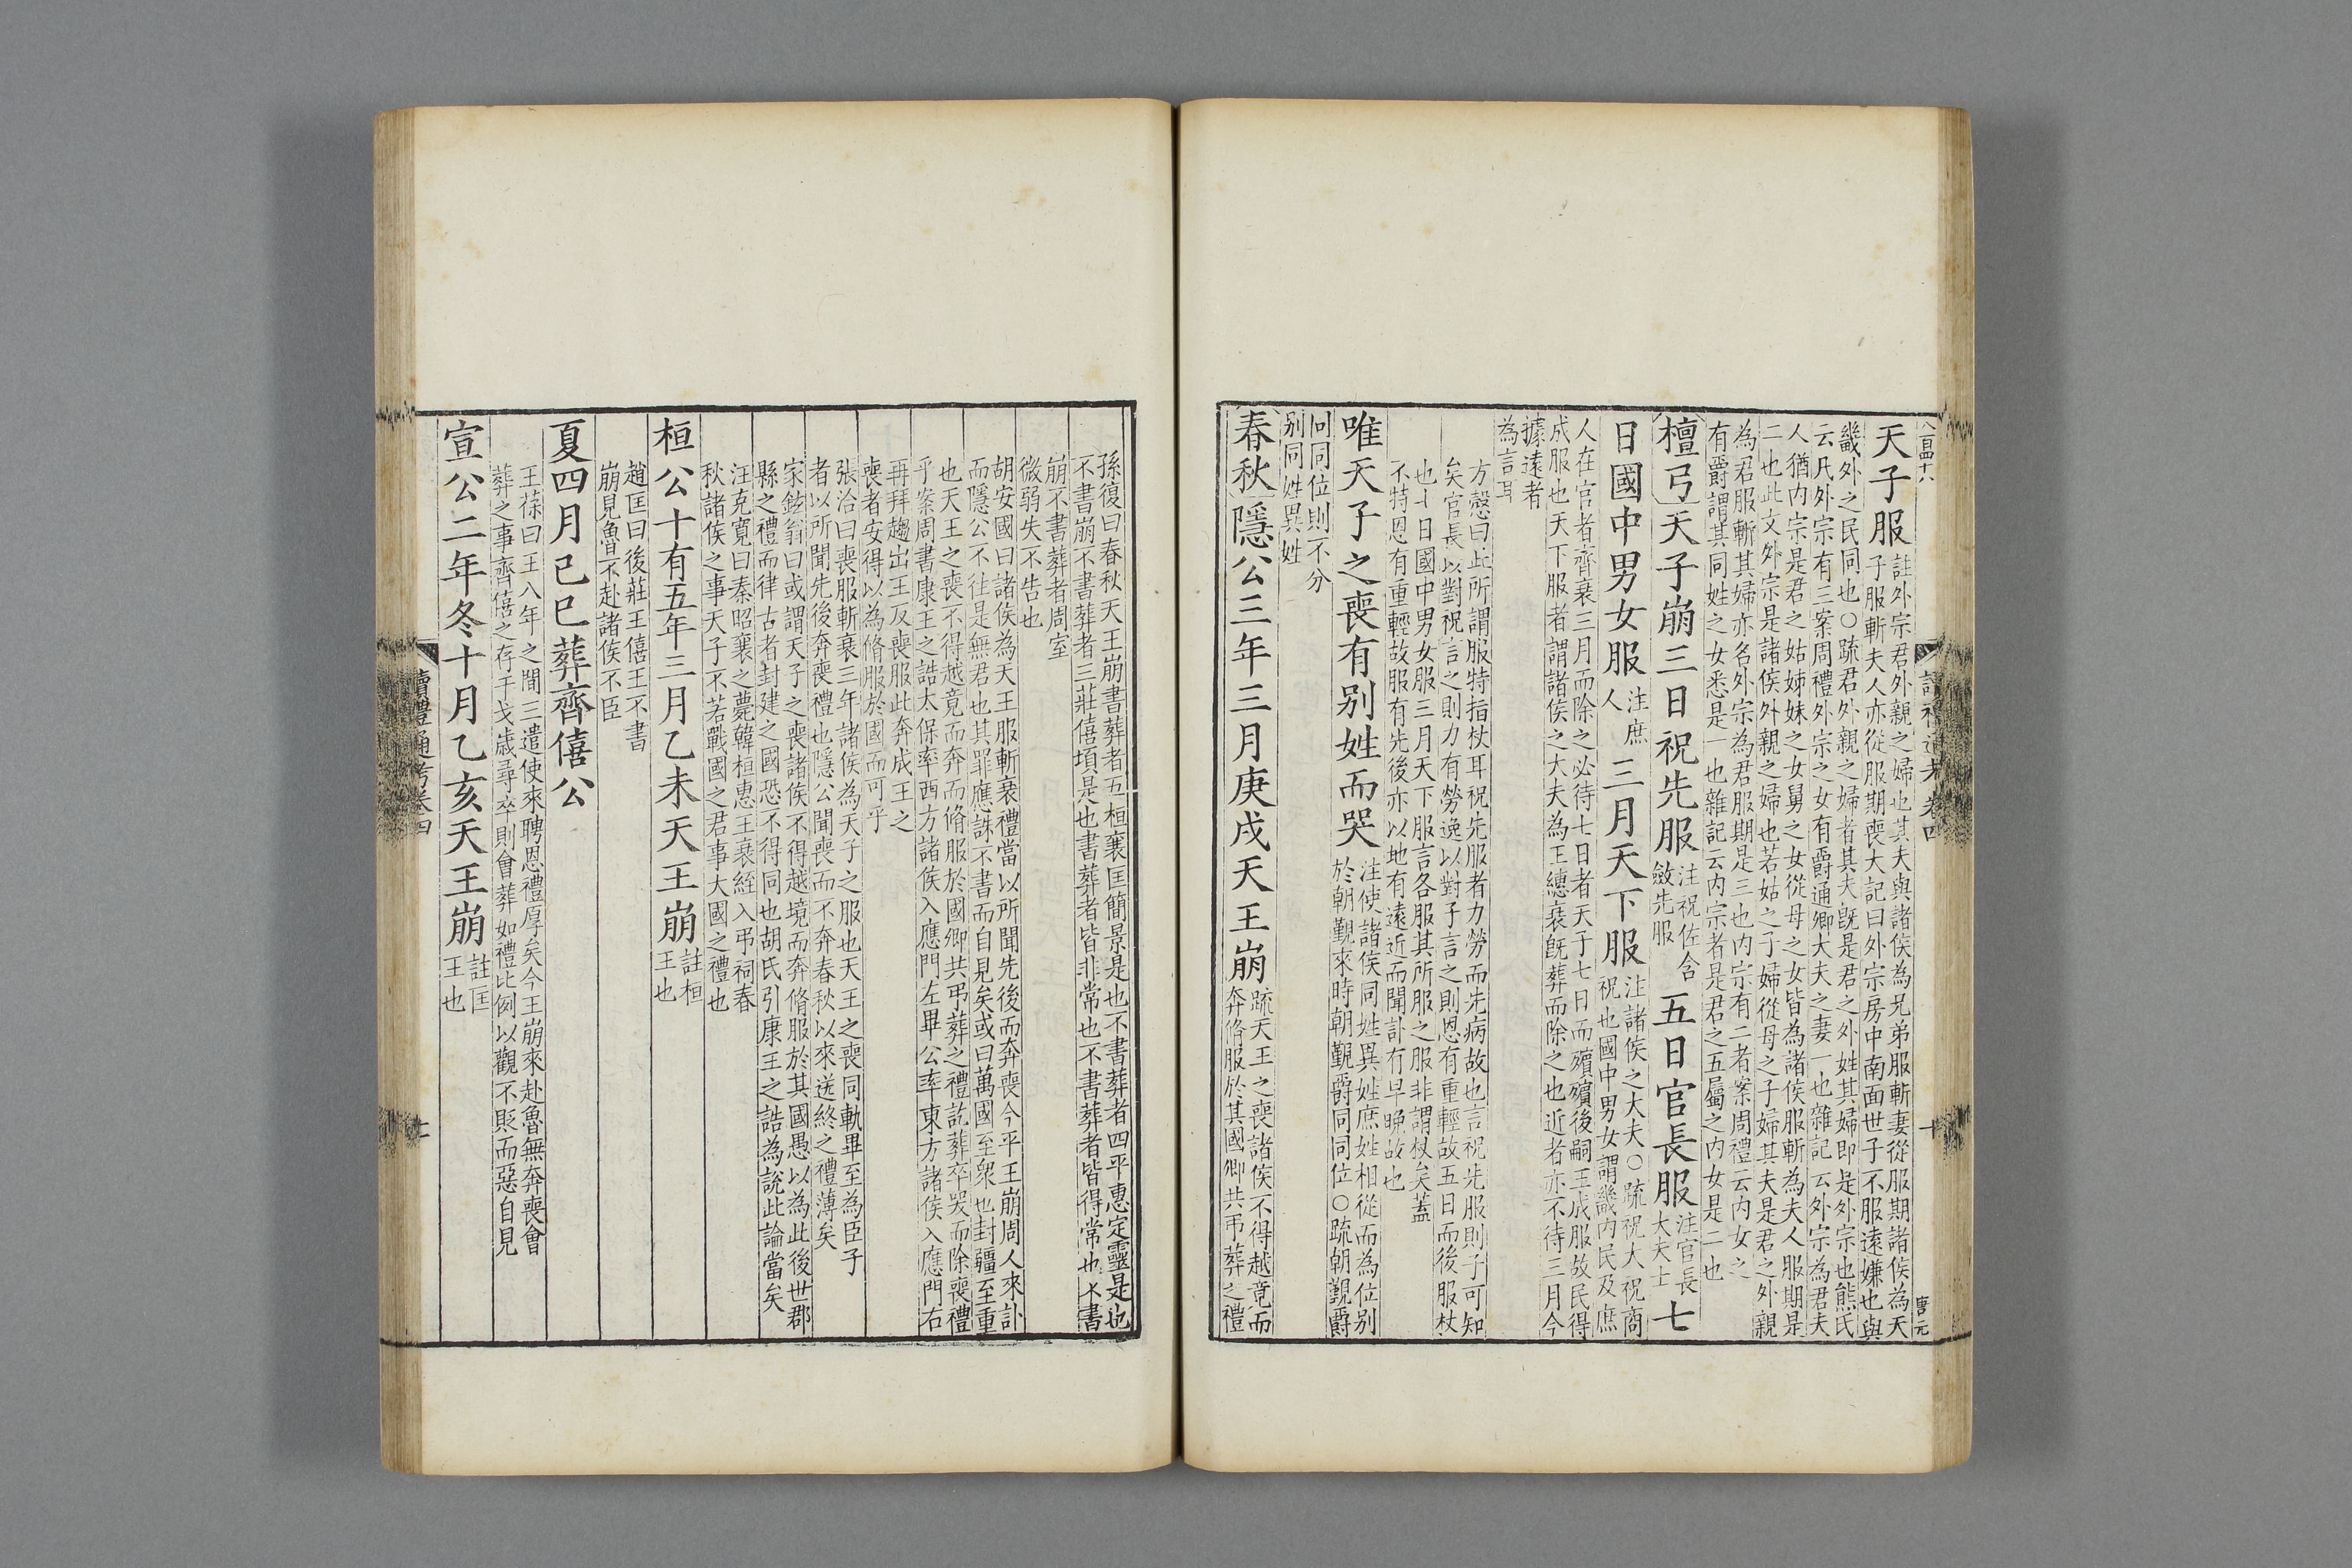 天子服註外宗君外親之婦也其夫與諸侯為兄弟服斬妻從服期諸侯為天
子服斬夫人亦從服期喪大記曰外宗房中南面世子不服遠嫌也與
畿外之民同也○疏君外親之婦者其夫既是君之外姓其婦即是外宗也熊氏
云凡外宗有三案周禮外宗之女有爵通卿大夫之妻一也雜記云外宗為君夫
人猶內宗是君之姑姊妹之女舅之女從母之女皆為諸侯服斬為夫人服期是
二也此文外宗是諸侯外親之婦也若姑之子婦從母之子婦其夫是君之外親
為君服斬其婦亦名外宗為君服期是三也內宗有二者案周禮云內女之
有爵謂其同姓之女悉是一也雜記云內宗者是君之五屬之內女是二也
檀弓天子崩三日祝先服注祝佐含斂先服五日官長服注官長大夫士七
日國中男女服注庶人三月天下服注諸侯之大夫○疏祝大祝商祝也國中男女謂畿內民及庶
人在官者齊衰三月而除之必待七日者天子七日而殯殯後嗣王成服故民得
成服也天下服者謂諸侯之大夫為王繐衰既葬而除之也近者亦不待三月今
據遠者
為言耳
方慤曰此所謂服特指杖耳祝先服者力勞而先病故也言祝先服則子可知
矣官長以對祝言之則力有勞逸以對子言之則恩有重輕故五日而後服杖
也七日國中男女服三月天下服言各服其所服之服非謂杖矣蓋
不特恩有重輕故服有先後亦以地有遠近而聞訃有早晚故也
唯天子之喪有別姓而哭注使諸侯同姓異姓庶姓相從而為位別於朝覲來時朝覲爵同同位○疏朝覲爵
同同位則不分
別同姓異姓
春秋隱公三年三月庚戌天王崩疏天王之喪諸侯不得越竟而奔脩服於其國卿共弔葬之禮
孫復曰春秋天王崩書葬者五桓襄匡簡景是也不書葬者四平惠定靈是也
不書崩不書葬者三莊僖頃是也書葬者皆非常也不書葬者皆得常也不書
崩不書葬者周室
微弱失不告也
胡安國曰諸侯為天王服斬衰禮當以所聞先後而奔喪今平王崩周人來訃
而隱公不往是無君也其罪應誅不書而自見矣或曰萬國至衆也封疆至重
也天王之喪不得越竟而奔而脩服於國卿共弔葬之禮訖葬卒哭而除喪禮
乎案周書康王之誥太保率西方諸侯入應門左畢公率東方諸侯入應門右
再拜趨出王反喪服此奔成王之
喪者安得以為脩服於國而可乎
張洽曰喪服斬衰三年諸侯為天子之服也天王之喪同軌畢至為臣子
者以所聞先後奔喪禮也隱公聞喪而不奔春秋以來送終之禮薄矣
家鉉翁曰或謂天子之喪諸侯不得越境而奔脩服於其國愚以為此後世郡
縣之禮而律古者封建之國恐不得同也胡氏引康王之誥為說此論當矣
汪克寬曰秦昭襄之薨韓桓惠王衰絰入弔祠春
秋諸侯之事天子不若戰國之君事大國之禮也
桓公十有五年三月乙未天王崩註桓王也
趙匡曰後莊王僖王不書
崩見魯不赴諸侯不臣
夏四月己巳葬齊僖公
王葆曰王八年之間三遣使來聘恩禮厚矣今王崩來赴魯無奔喪會
葬之事齊僖之存干戈歲尋卒則會葬如禮比例以觀不貶而惡自見
宣公二年冬十月乙亥天王崩註匡王也
讀禮通考卷四